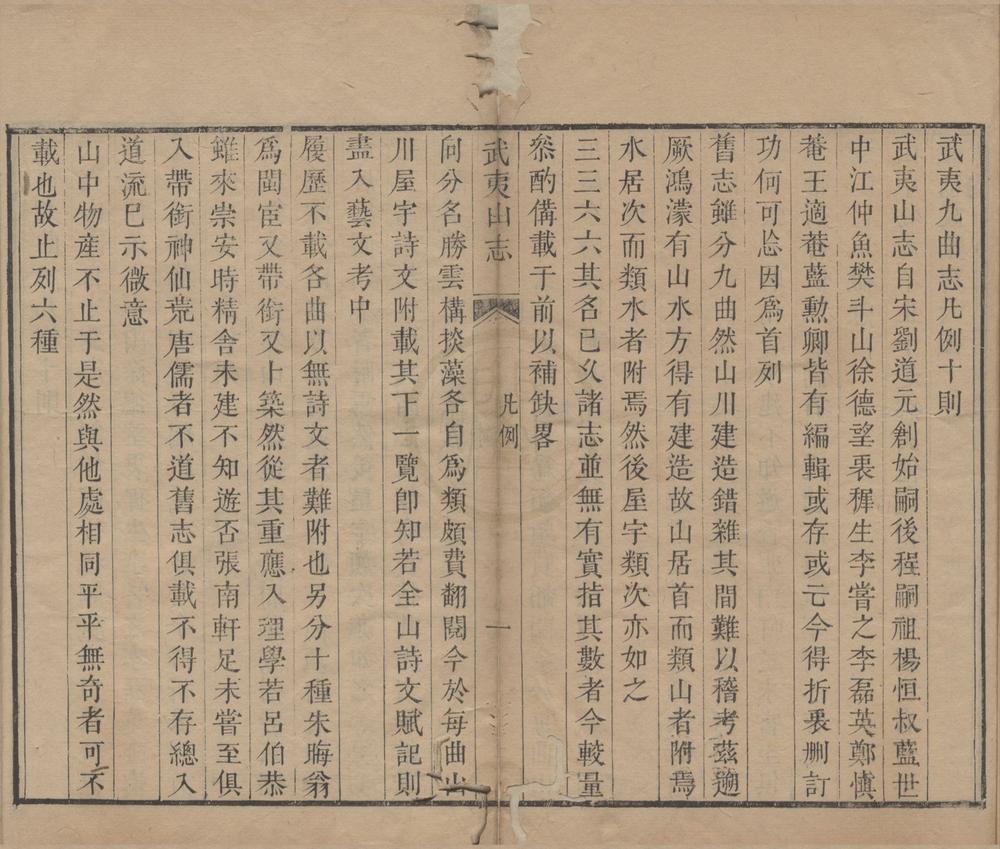 武夷九曲志凡例十則
武夷山志自宋劉道元創始嗣後程嗣祖楊恒叔藍世
中江仲魚樊斗山徐德望裵穉生李嘗之李磊英鄭愼
菴王適菴藍勲卿皆有編輯或存或亡今得折裵刪訂
功何可忩因爲首列
舊志雖分九曲然山川建造錯雜其間難以稽考茲遡
厥鴻濛有山水方得有建造故山居首而類山者附焉
水居次而類水者附焉然後屋宇類次亦如之
三三六六其名已久諸志並無有實指其數者今較量
叅酌備載于前以補缺畧
武夷山志
凡例
一
向分名勝雲構掞藻各自爲類頗費翻閱今於每曲山
川屋宇詩文附載其下一覽卽知若全山詩文賦記則
盡入藝文考中
履歷不載各曲以無詩文者難附也另分十種朱晦翁
爲閩宦又帶銜又卜築然從其重應入理學若呂伯恭
雖來崇安時精舍未建不知遊否張南軒足未嘗至俱
入帶銜神仙荒唐儒者不道舊志俱載不得不存總入
道流巳示微意
山中物產不止于是然與他處相同平平無奇者可不
載也故止列六種